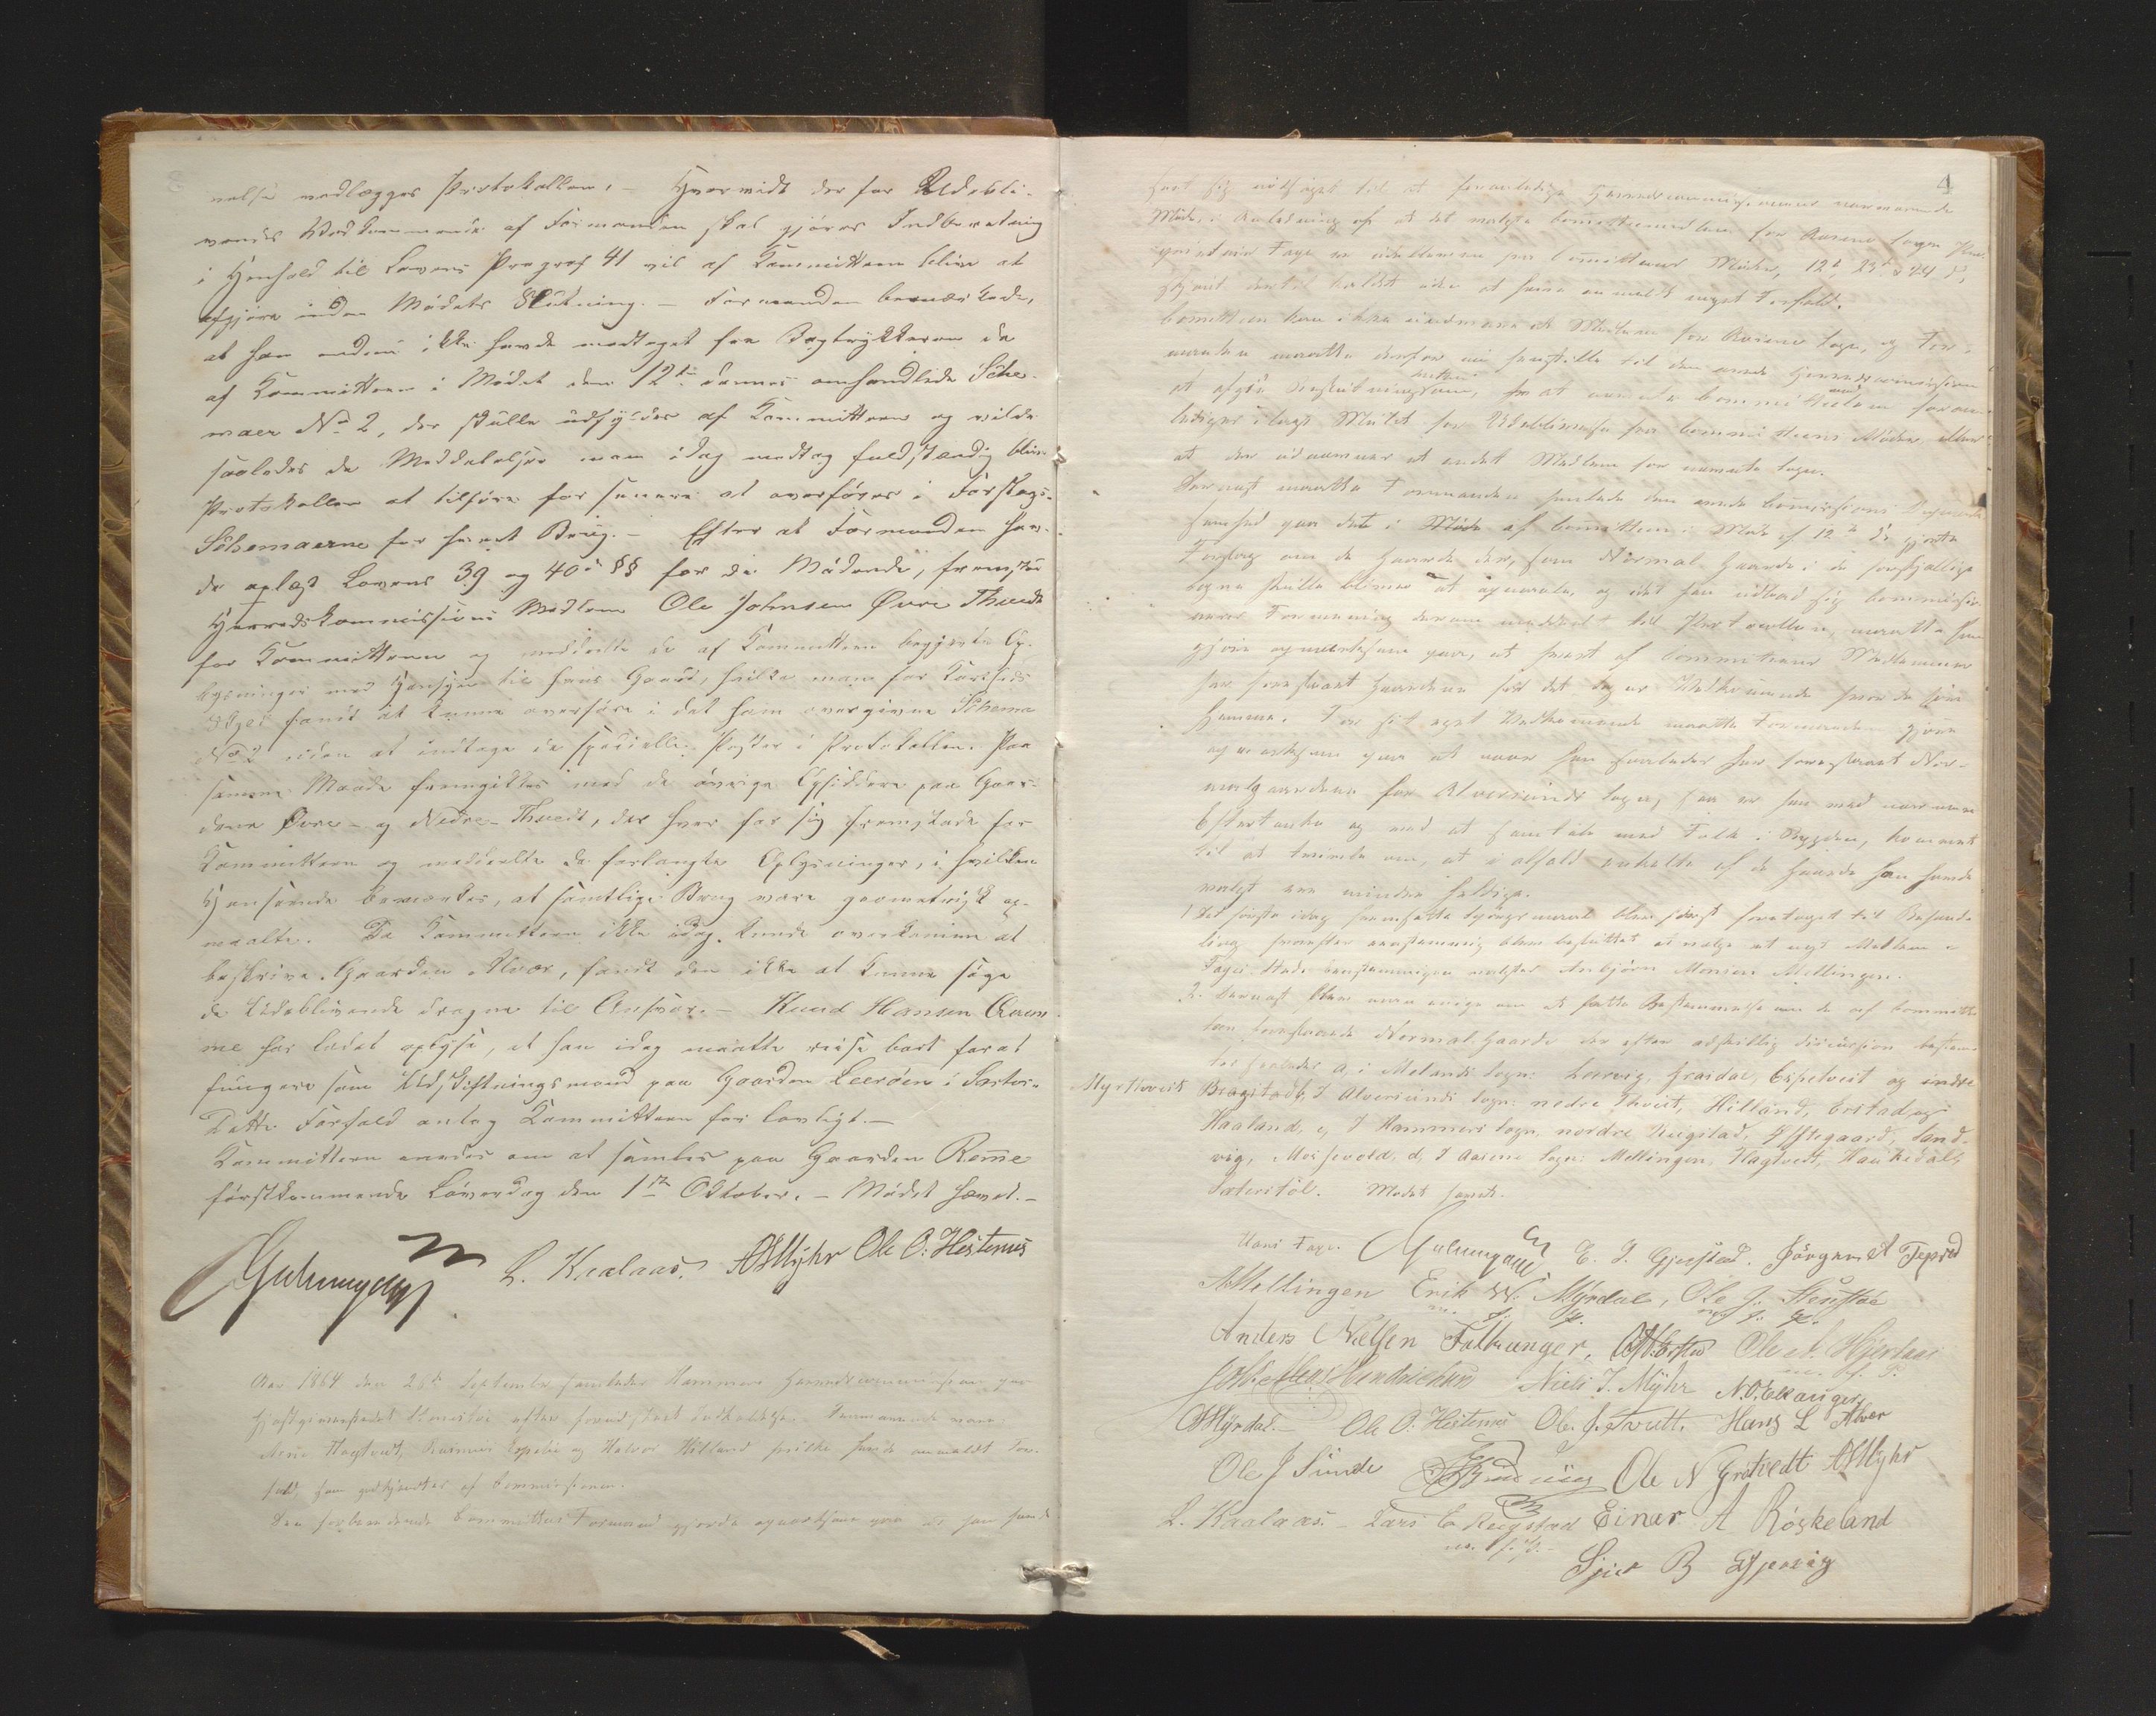 velse vedlægges Protokollen. – Hvorvidt der for Udebli-
vendes Vedkommende af Formanden skal gjøres Indberetning
i Henhold til Lovens Pragraf 41 vil af Kommitteen blive at
afgjøre inden Mødets Slutning. – Formanden bemærkede,
at han endnu ikke havde modtaget fra Bogtrykkeren de
af Kommitteen i Mødet den 12te dennes omhandlede Sche-
maer No 2, der skulle udfyldes af Kommitteen og vilde
saaledes de Meddelelser man idag modtog fuldstændig blive
Protokollen at tilføre for senere at overføres i Forslags-
Schemaerne for hvert Brug. – Efter at Formanden hav-
de oplæst Lovens 39 og 40de §§ for de Mødende, fremstod
Herredskommissions Medlem Ole Johnsen Øvre Thvedt
for Kommitteen og meddeelte de af Kommitteen begjærte Op-
lysninger med Hensyn til hans Gaard, hvilke man for Kortheds
Skyld fandt at kunne overføre i det ham overgivne Schema
No 2 uden at indtage de specielle Poster i Protokollen. Paa
samme Maade fremgikkes med de øvrige Opsiddere paa Gaar-
dene Øvre- og Nedre-Thvedt, der hver for sig fremstode for
Kommitteen og meddeelte de forlangte Oplysninger, i hvilken
Henseende bemærkes, at samtlige Brug vare geometrisk op-
maalte. Da Kommitteen ikke idag kunde overkomme at
beskrive Gaarden Alver, fandt den ikke at kunne søge
de Udeblivende dragne til Ansvar. – Knud Hansen
me har ladet oplyse, at han idag maatte reise bort forat
fungere som Udskiftningsmand paa Gaarden Leerøen i
Dette Forfald antog Kommitteen for lovligt. –
Kommitteen enedes om at samles paa Gaarden Reme
førstkommende Løverdag den 1ste Oktober. – Mødet hævet. –
L. Kaalaas. AMyhr Ole O: Hestenes
Aar 1864 den 26de September samledes Hammers Herredscommission paa
efter forudskeet Indkaldelse. Fraværende vare:
Hagtvedt, Rasmus og Halvor Hilland hvilke havde anmeldt For-
fald, som godkjendtes af Commissionen.
Den Committees Formand gjorde opmærksom paa at han havde
4
seet sig nødsaget til at foranledige Herredscommissionens nærværende
Møde, i Anledning af at det valgte Committeemedlem for Aasene Sogn
Fage er udebleven fra Committeens Møder, 12te, 23de & 24 ds,
uden at have anmeldt noget Forfald.
Committeen kan ikke undvære et Medlem for Aasene Sogn, og For-
manden maatte derfor nu henstille til den ærede Herredscommission
at afgive enten nævnte Committeemedlem foran-
lediges ilagt Mulct for Udeblivelse fra Committeens Møder eller
at der udnævnes et andet Medlem for nævnte Sogn.
Dernæst maatte Formanden henlede den ærede Commissions Opmærk-
somhed paa det i Møde af Committeen i Møde af 12te ds gjorte
Forslag om de Gaarde der, som Normal-Gaarde i de forskjellige
Sogne skulle blive at opmaale, og idet han udbad sig Commissio-
nens Formening derom meddeelt til Protocollen, maatte han
gjøre opmærksom paa, at hvert af Committeens Medlemmer
har foreslaaet Gaardene for det Sogn Vedkommende hvor de have
hjemme. For sit eget Vedkommende maatte Formanden gjøre
opmærksom paa at naar han saaledes har foreslaaet Nor-
malgaardene for Alversunds Sogn, saa er han med nærmere
Eftertanke og ved at samtale med Folk i Bygden, kommet
til at tvivle om, at i alfald enkelte af de Gaarde han havde
valgt ere mindre heldige.
1 Det første idag fremsatte Spørgsmaal blev først foretaget til Behand-
ling hvorefter eenstemmig blev besluttet at vælge et nyt Medlem i
Fages Sted. Eenstemmigen valgtes Anbjørn Monsen Mellingen.
2. Dernæst blev man enige om at fatte Bestemmelse om de af Committe-
en foreslaaede Normal-Gaarde der efter adskillig Discussion bestem-
tes saaledes a, i Melands Sogn: Leervig, Grasdal, Espetveit og indre
Myrthveit Bragstad b, I Alversunds Sogn: nedre Thveit, Hilland, Erstad og
Haaland, c, I Hammers Sogn, nordre Reigstad, Øfstegaard, Sand-
vig, Mossevold. d, I Aasene Sogn: Mellingen, Hagtvedt, Haukedal
Sæterstøl. Mødet hævet.
Mons Fage. E. J. Gjerstad. Jørgen A Tepstad
AMellingen Erik N. Myrdal, Ole J. Stenstøe
Anders Nielsen Falkanger, Ole A. Hjertaas
Niels J. Myhr N.O.Eknanger
OMyrdal. – Ole O: Hestenes Ole J. Tvedt. Hans L Alver
Ole J Sunde Ole N Grøtvedt AMyhr
L. Kaalaas. – Lars C Reigstad Einar A Røskeland
m. f. P. –
B